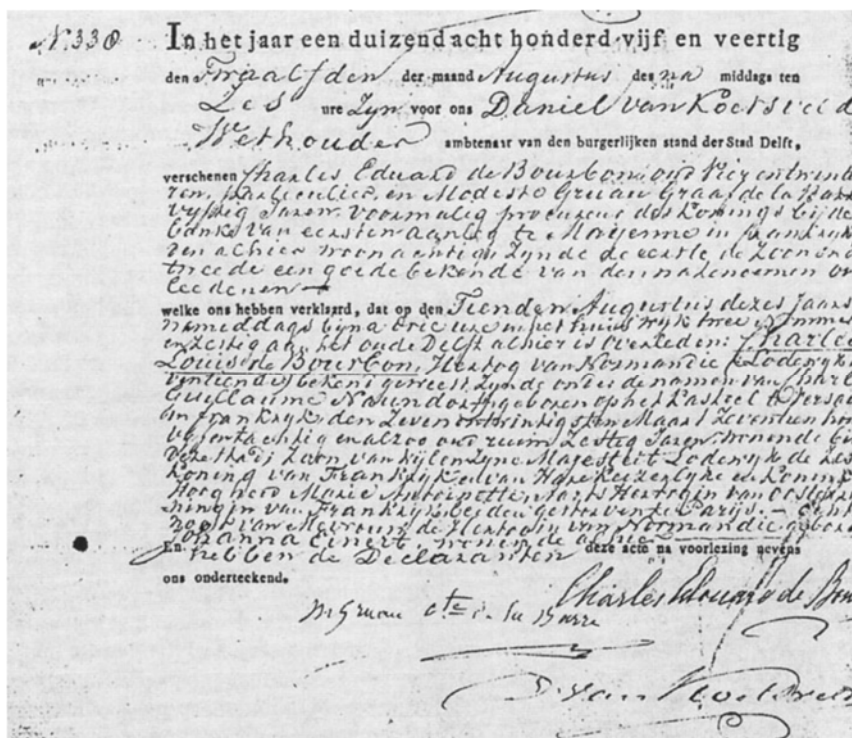 N. 330 In het jaar een duizend acht honderd vijf en veertig
den Twaalfden der maand Augustus des na middags ten
Zes ure Zyn voor ons Daniel van Koetsveld
Wethouder ambtenaar van den burgerlijken stand der Stad Delft,
verschenen Charles Eduard de Bourbon, oud Vier en twin
ren, particulier, en Modeste Gruau Graaf de la Barre
vyftig Jaren, voormalig procureur des Konings bij de
banke van eersten aanleg te Mayenne in Frankryk
ren alhier woonachtig, Zynde de eerste de Zoon en d
tweede een goede bekende van den na te noemen ov
leedenen
welke ons hebben verklaard, dat op den Tienden Augustus dezes Jaars
namiddags bijna drie ure in het huis wyk twee nommer
en zestig aan het oude Delft alhier is overleden: Charles
Louis de Bourbon, Hertog van Normandie (Lodewyk
ventiende) bekend geweest Zynde onder de namen van Charl
Guillaume Naundorff geboren op het Kasteel te Versai
in Frankryk den Zeven en twintigsten Maart Zeventien hon
vyf en tachtig en alzoo oud ruim Zestig Jaren, wonende
Zoon van wylen Zyne Majesteit Lodewyk de Zes
Koning van Frankryk en van Hare Keizerlyke en Konink
Hoogheid Marie Antoinette, Aarts Hertogin van Oosten
ningin van Frankryk beiden gestorven te Parijs. Echt
noot van Mevrouw de Hertogin van Normandie gebore
Johanna Einert, wonende alhier
En hebben de Declaranten deze acte na voorlezing nevens
ons onderteekend.
Charles Edouard de Bou
M Gruau cte de la Barre
D van Koetsveld